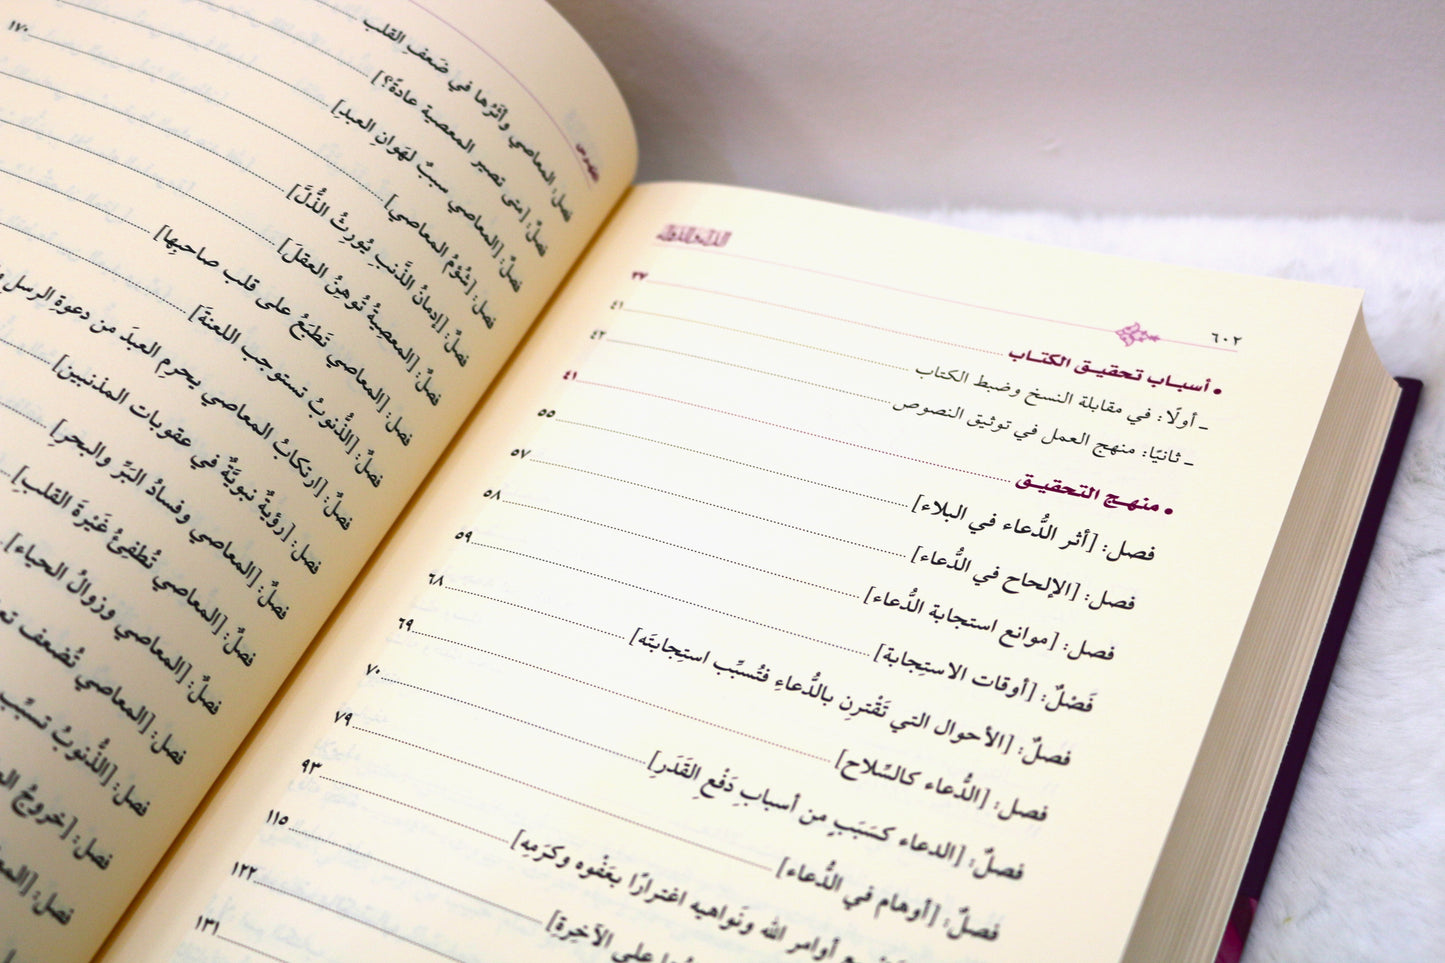 الداء والدواء
٦٠٢
• أسباب تحقيق الكتاب ٣٧
ـ أولًا: في مقابلة النسخ وضبط الكتاب ٤١
ـ ثانيًا: منهج العمل في توثيق النصوص ٤٢
• منهج التحقيق ٤١
فصل: [أثر الدُّعاء في البلاء] ٥٥
فصل: [الإلحاح في الدُّعاء] ٥٧
فصل: [موانع استجابة الدُّعاء] ٥٨
فَصْلٌ: [أوقات الاستِجابة] ٥٩
فصلٌ: [الأحوال التي تَقْترِن بالدُّعاءِ فتُسبِّب استِجابتَه] ٦٨
فصل: [الدُّعاء كالسِّلاح] ٦٩
فصلٌ: [الدعاء كسَبَبٍ من أسبابِ دَفْعِ القَدَرِ] ٧٠
فصلٌ: [أوهام في الدُّعاء] ٧٩
أوامر الله ونَواهيه اغترارًا بعَفْوه وكرَمِه] ٩٣
على الآخِرةِ] ١١٥
١٢٢
١٣١
الفهرس
فصل: المعاصي وأثرُها في ضَعفِ القلب
فصلٌ: [متى تصير المعصية عادةً؟] ١٧٠
فصلٌ: [المعاصي سببٌ لهَوانِ العبدِ]
فصل: [شُؤمُ المعاصي]
فصلٌ: [إدمانُ الذَّنبِ يُورِثُ الذُّلَّ]
فصلٌ: [المعصِيةُ تُوهِنُ العقلَ]
فصل: [المعاصي تَطبَعُ على قلب صاحبِها]
فصلٌ: [الذُّنوبُ تستوجب اللعنةَ]
فصلٌ: [ارتكابُ المعاصي يحرِم العبدَ من دعوةِ الرسل
فصل: [رؤيةٌ نبويَّةٌ في عقوبات المذنبين]
فصلٌ: [المعاصي وفسادُ البَرِّ والبحرِ]
فصلٌ: [المعاصي تُطفِئُ غَيْرةَ القلبِ]
فصلٌ: [المعاصي وزوالُ الحياء]
فصل: [المعاصي تُضعف
فصل: [الذُّنوبُ تسبِّب
فصل: [خروجُ
فصل: